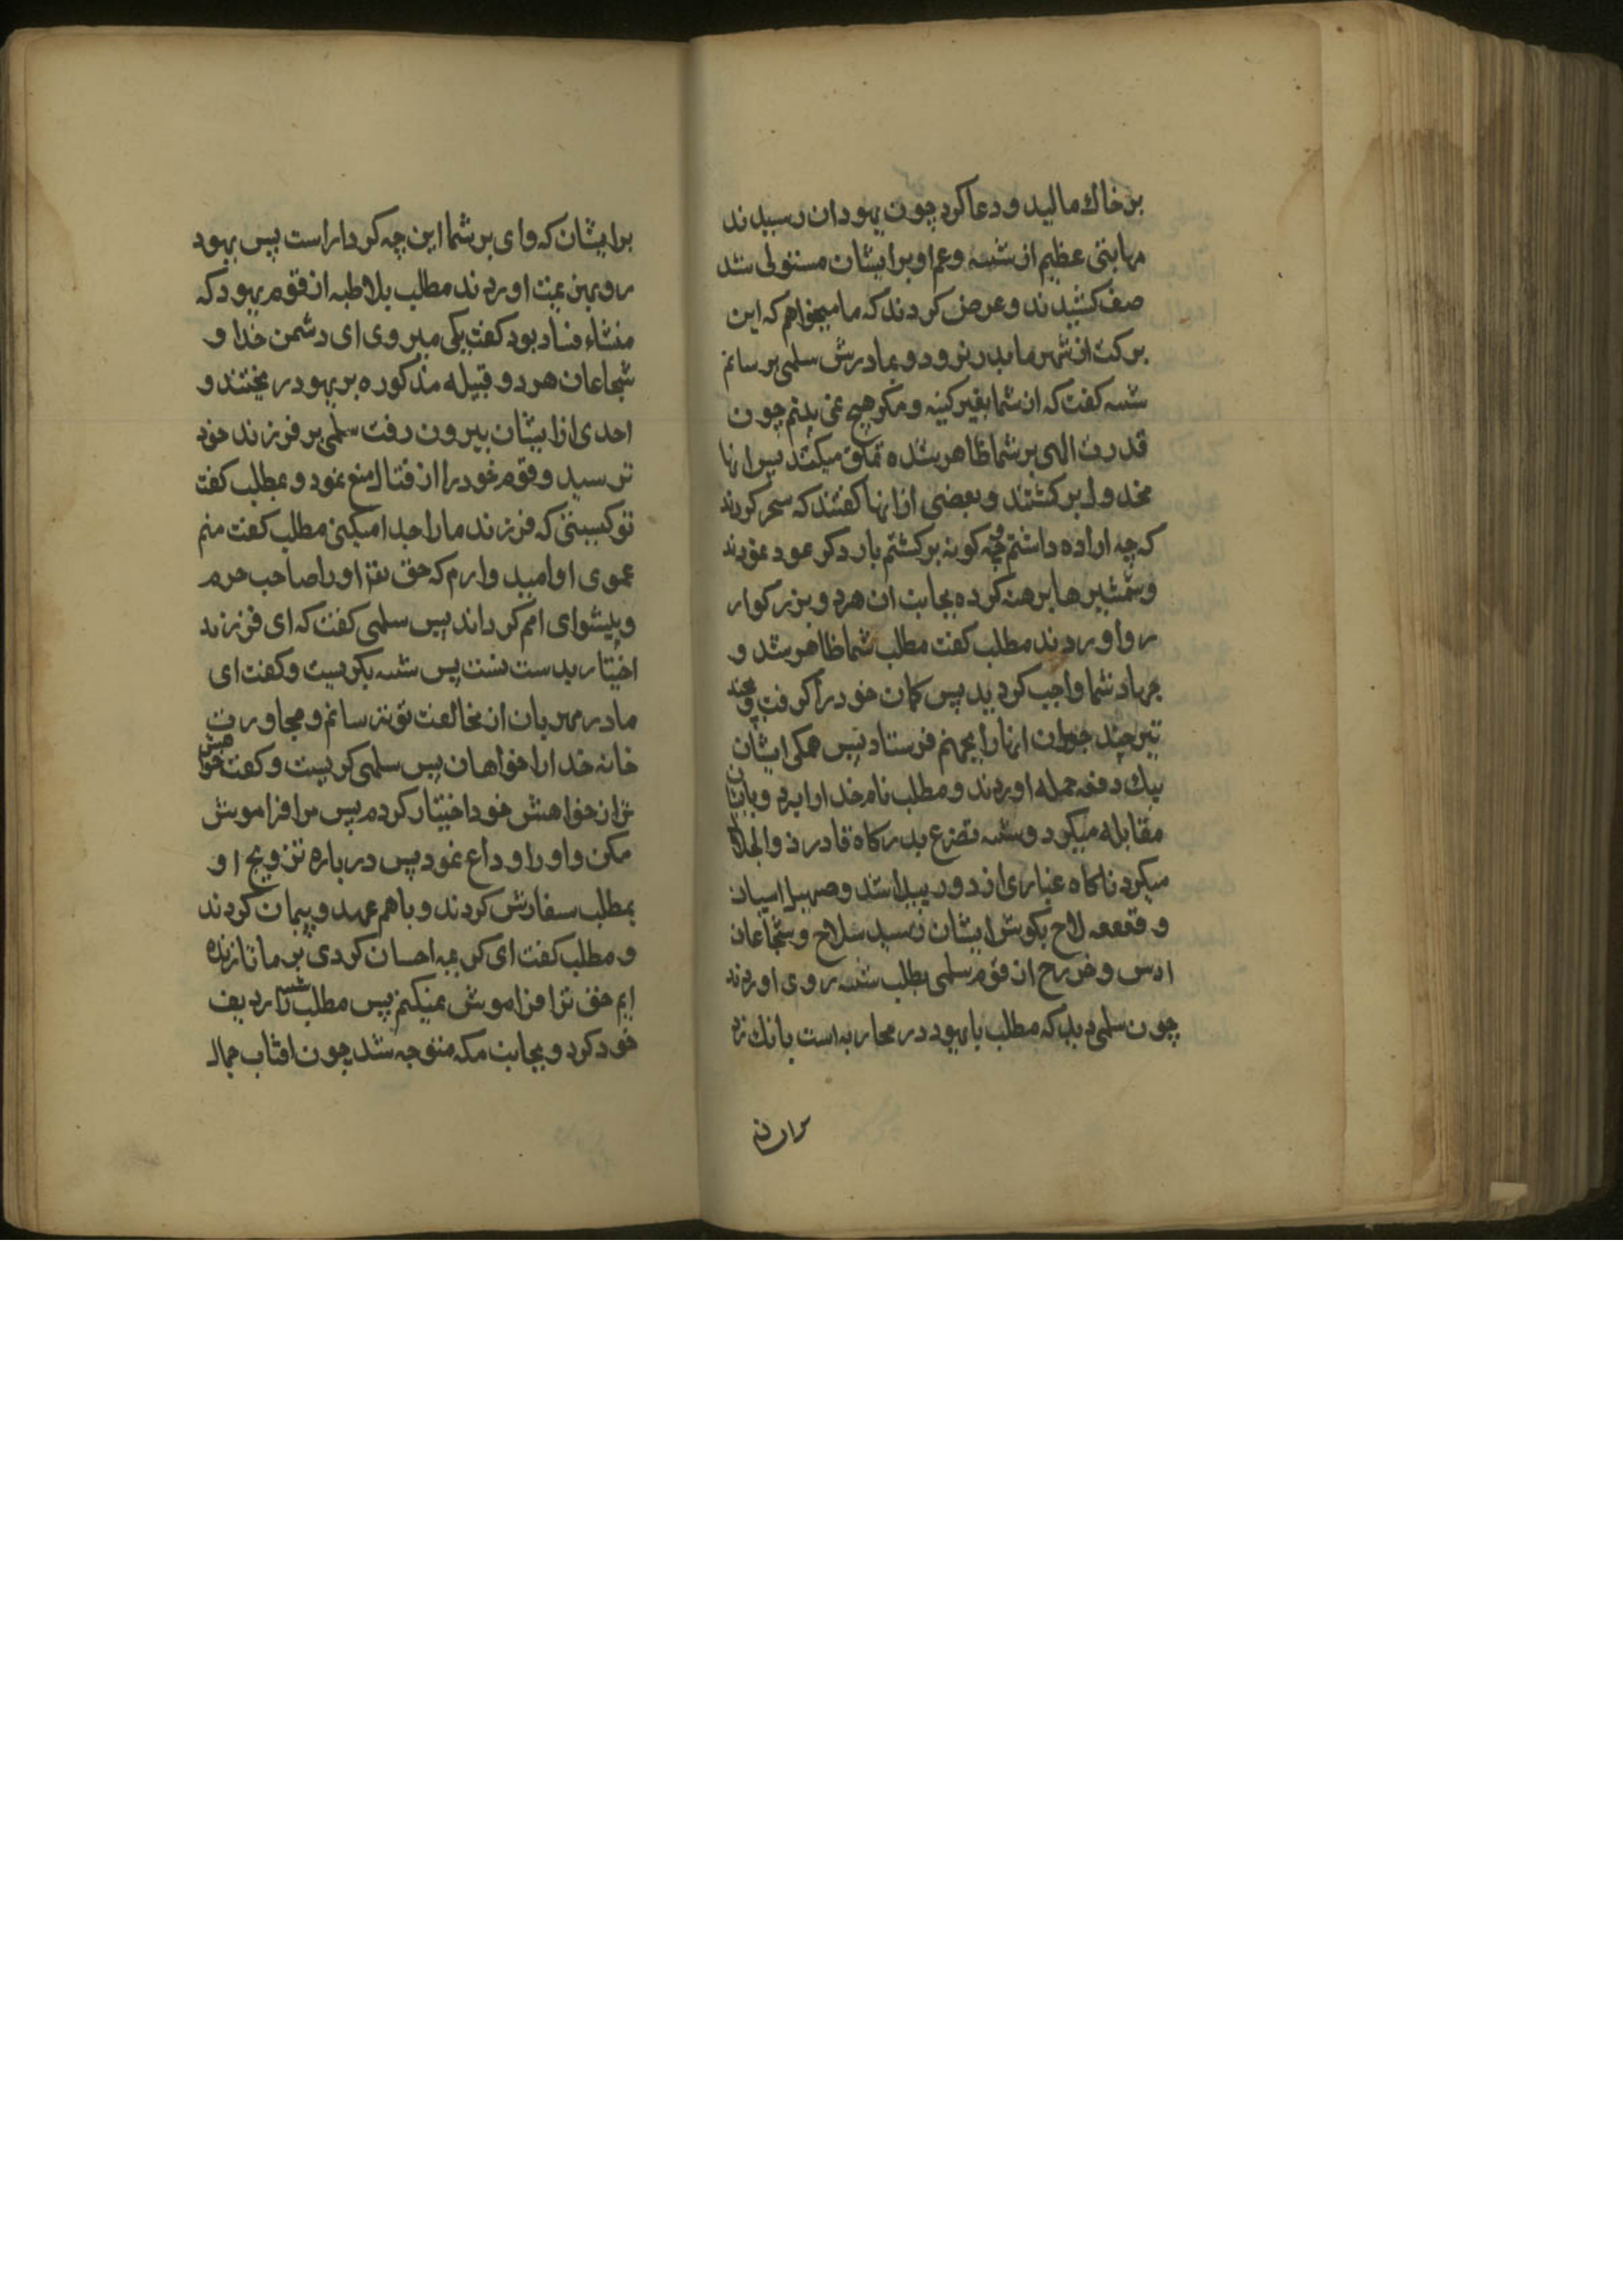 بر خاك ماليد و دعا كرد چون يهودان رسيدند
مهابتى عظيم از شيبه و عم او بر ايشان مستولى شد
صف كشيدند و عرض كردند كه ما ميخواهم كه اين
بركت از شهر ما بدر نرود و بمادرش سلمى برسانم
شيبه كفت كه از شما بغير كينه و مكر هيچ نمى بينم چون
قدرت الهى بر شما ظاهر شده تملق ميكنند پس انها
مخذول بركشتند و بعضى از انها كفتند كه سحر كردند
كه چه اراده داشتم چه كونه بركشتم بار دكر عود نمودند
و شمشيرها برهنه كرده بجانب ان هر دو بزركوار
رو اوردند مطلب كفت مطلب شما ظاهر شد و
جهاد شما واجب كرديد پس كمان خود را كرفت و بچند
تير چند جوان انها را بجهنم فرستاد پس همكى ايشان
بيك دفعه حمله اوردند و مطلب نام خدا را برد و با ايشان
مقابله ميكرد و شيبه تضرع بدركاه قادر ذوالجلال
ميكرد ناكاه غبارى از دور پيدا شد و صهيل اسپان
و قعقعه لاح بكوش ايشان رسيد سلاح و شجاعان
اوس و خزرج از قوم سلمى بطلب شيبه روى اوردند
چون سلمى ديد كه مطلب با يهود در محاربه است بانك زد
بر ايشان كه واى بر شما اين چه كردار است پس يهود
رو بهزيمت اوردند مطلب بلاطيه از قوم يهود كه
منشاء فساد بود كفت بكى ميروى اى دشمن خدا و
شجاعان هر دو قبيله مذكوره بر يهود ريختند و
احدى از ايشان بيرون رفت سلمى بر فرزند خود
ترسيد و قوم خود را از قتال منع نمود و بمطلب كفت
تو كيستى كه فرزند ما را جدا ميكنى مطلب كفت منم
عموى او اميد وارم كه حق تعا او را صاحب حرم
و پيشواى امم كرداند پس سلمى كفت كه اى فرزند
اختيار بدست تست پس شيبه بكريست و كفت اى
مادر مهربان از مخالفت تو ترسانم و مجاورت
خانه خدا را خواهان پس سلمى كريست و كفت خواهش
ترا از خواهش خود اختيار كردم پس مرا فراموش
مكن و او را وداع نمود پس درباره تزويج او
بمطلب سفارش كردند و با هم عهد و پيمان كردند
و مطلب كفت اى كريمه احسان كردى بر ما تا زنده
ايم حق ترا فراموش نميكنم پس مطلب شيبه را رديف
خود كرد و بجانب مكه متوجه شد چون افتاب جمال